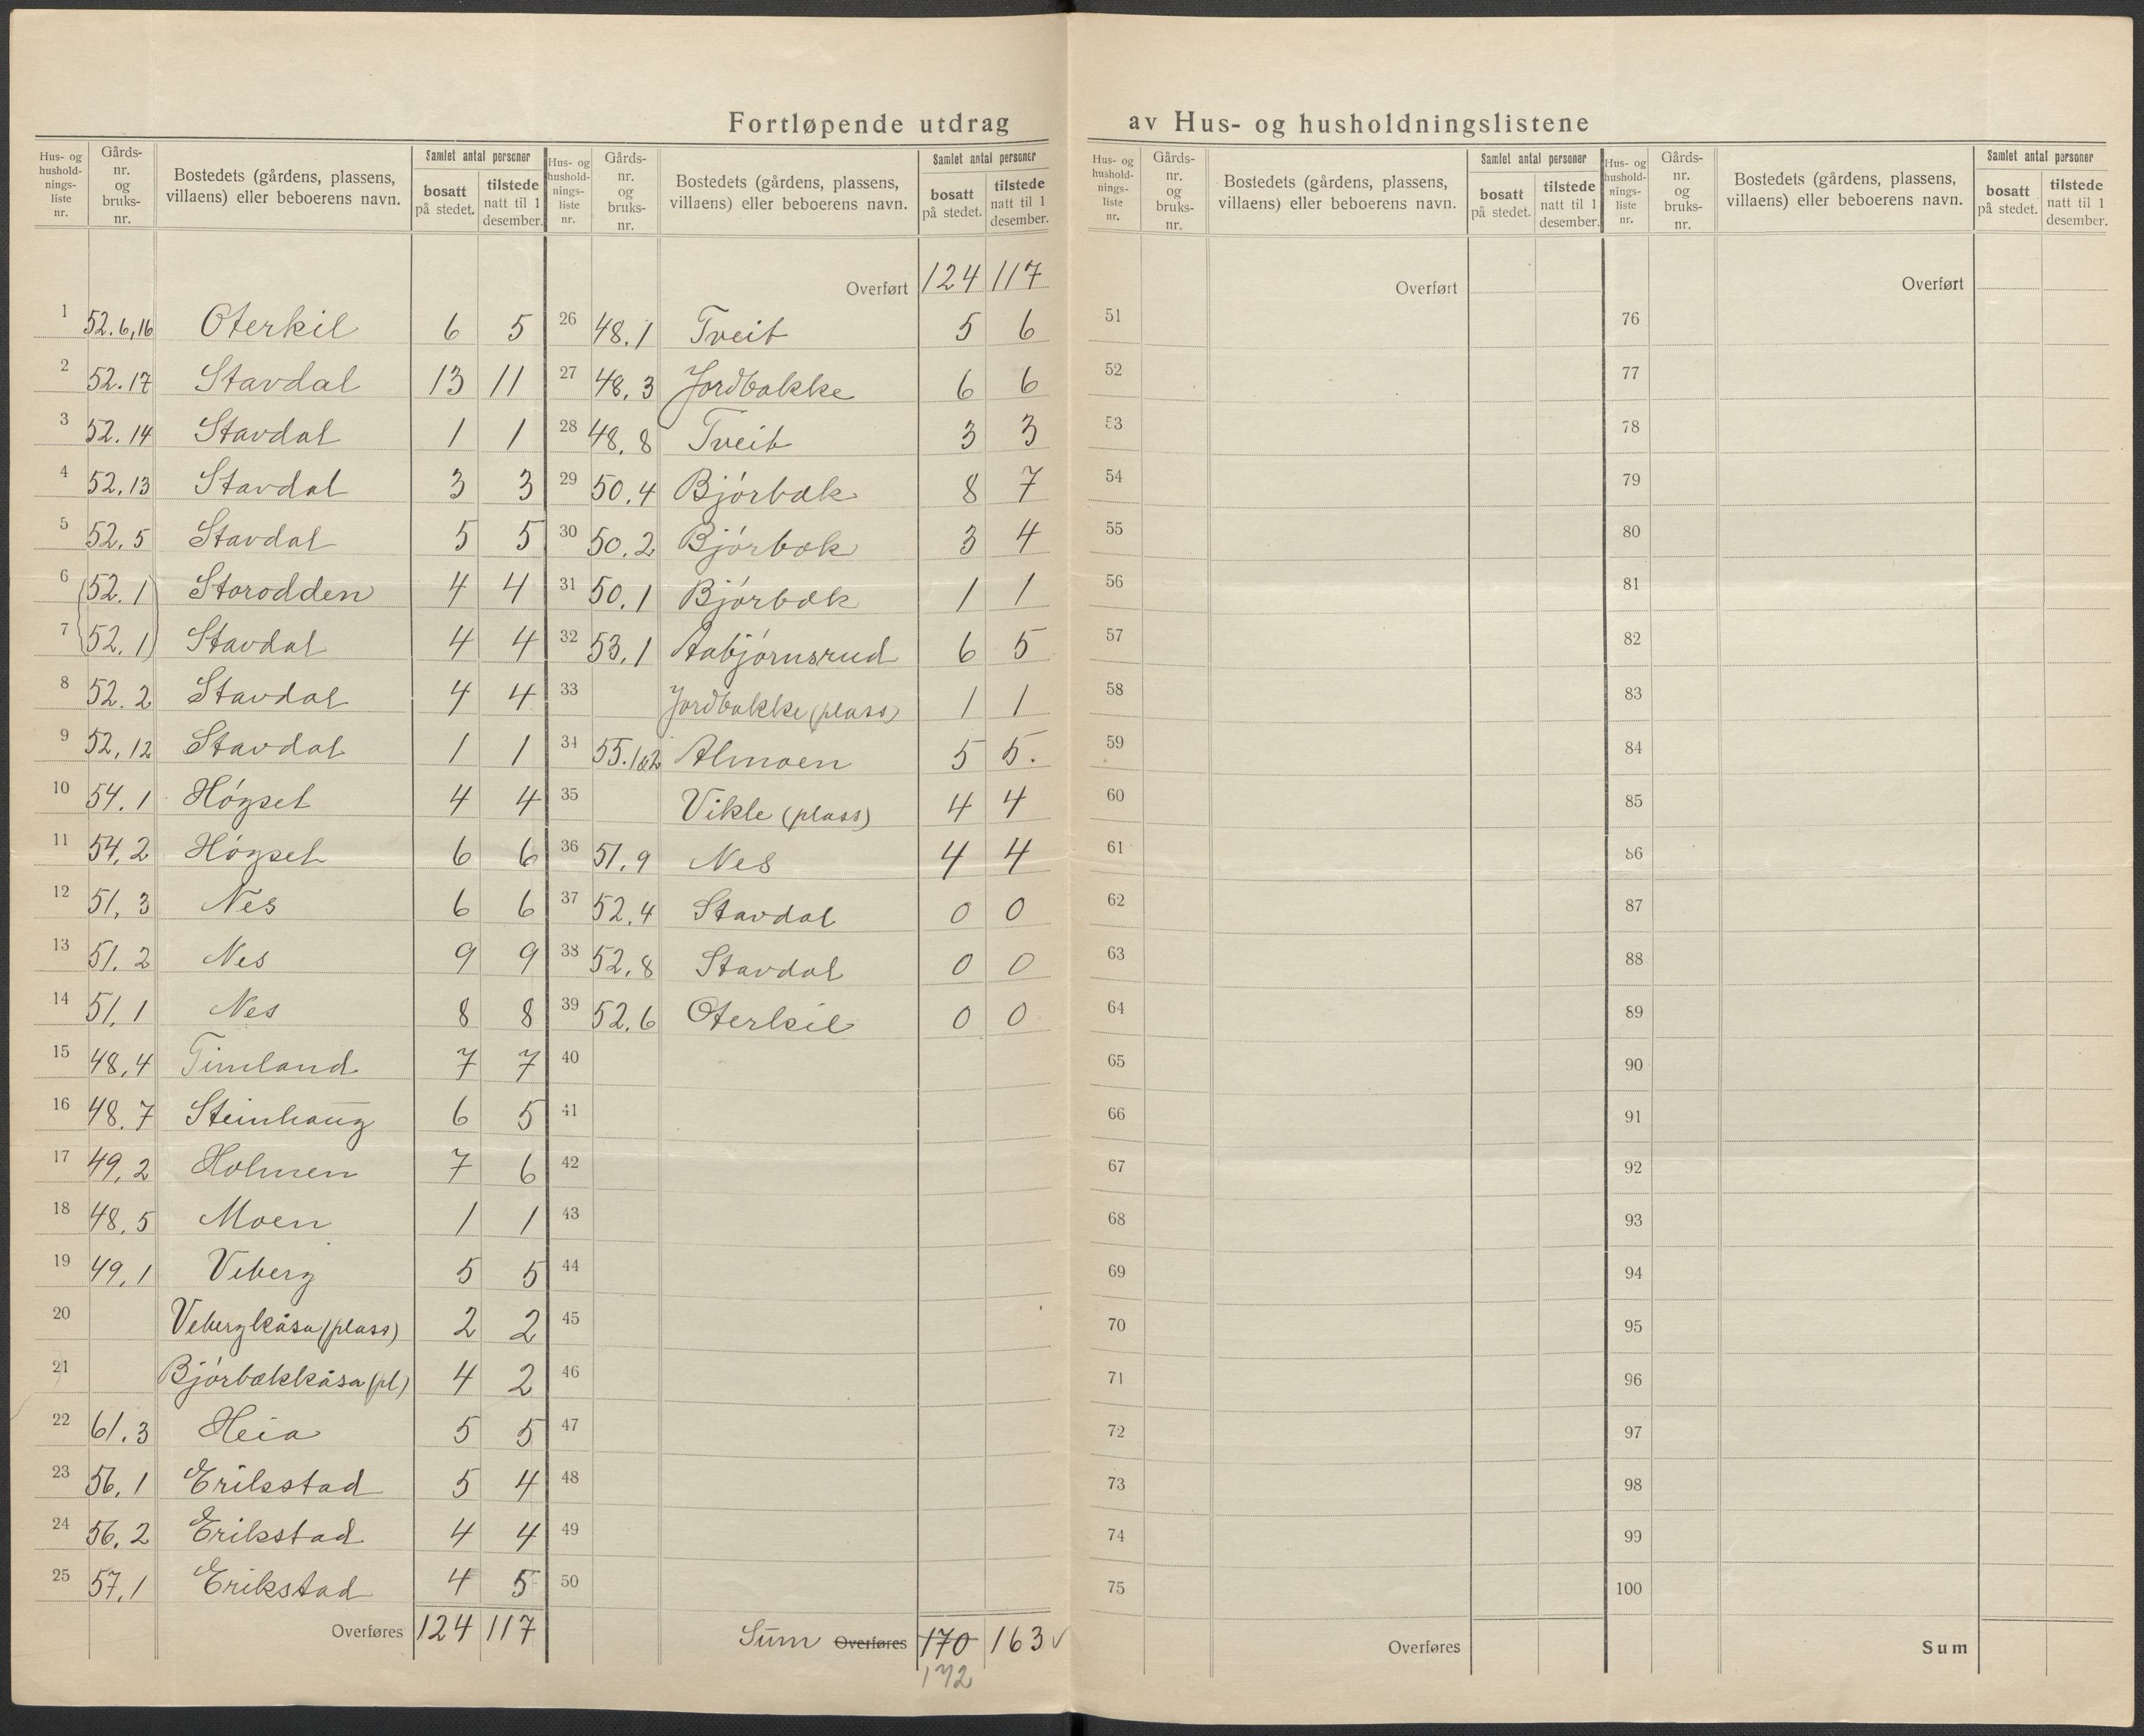 Fortløpende utdrag av Hus- og husholdningslistene
Hus- og hushold-nings-liste nr. | Gårds-nr. og bruks-nr. | Bostedets (gårdens, plassens, villaens) eller beboerens navn. | Samlet antal personer | bosatt på stedet. | tilstede natt til 1 desember.
1 52.6,16 Oterkil 6 5
2 52.17 Stavdal 13 11
3 52.14 Stavdal 1 1
4 52.13 Stavdal 3 3
5 52.5 Stavdal 5 5
6 (52.1) Storodden 4 4
7 (52.1) Stavdal 4 4
8 52.2 Stavdal 4 4
9 52,12 Stavdal 1 1
10 54.1 Høgset 4 4
11 54,2 Høgset 6 6
12 51,3 Nes 6 6
13 51.2 Nes 9 9
14 51,1 Nes 8 8
15 48,4 Timland 7 7
16 48.7 Steinhaug 6 5
17 49,2 Holmen 7 6
18 48,5 Moen 1 1
19 49,1 Veberg 5 5
20 Vebergkåsa (plass) 2 2
21 Bjørbækkåsa (pl) 4 2
22 61.3 Heia 5 5
23 56,1 Erikstad 5 4
24 56,2 Erikstad 4 4
25 57,1 Erikstad 4 5
Overføres 124 117
Hus- og hushold-nings-liste nr. | Gårds-nr. og bruks-nr. | Bostedets (gårdens, plassens, villaens) eller beboerens navn. | Samlet antal personer | bosatt på stedet. | tilstede natt til 1 desember.
Overført 124 117
26 48,1 Tveit 5 6
27 48,3 Jordbakke 6 6
28 48,8 Tveit 3 3
29 50,4 Bjørbæk 8 7
30 50.2 Bjørbæk 3 4
31 50,1 Bjørbæk 1 1
32 53,1 Aabjørnsrud 6 5
33 Jordbakke (plass) 1 1
34 55.1&2 Almoen 5 5.
35 Vikle (plass) 4 4
36 51,9 Nes 4 4
37 52,4 Stavdal 0 0
38 52,8 Stavdal 0 0
39 52.6 Oterkil 0 0
40
41
42
43
44
45
46
47
48
49
50
Sum Overføres 170 163 v
172
Hus- og hushold-nings-liste nr. | Gårds-nr. og bruks-nr. | Bostedets (gårdens, plassens, villaens) eller beboerens navn. | Samlet antal personer | bosatt på stedet. | tilstede natt til 1 desember.
Overført
51
52
53
54
55
56
57
58
59
60
61
62
63
64
65
66
67
68
69
70
71
72
73
74
75
Overføres
Hus- og hushold-nings-liste nr. | Gårds-nr. og bruks-nr. | Bostedets (gårdens, plassens, villaens) eller beboerens navn. | Samlet antal personer | bosatt på stedet. | tilstede natt til 1 desember.
Overført
76
77
78
79
80
81
82
83
84
85
86
87
88
89
90
91
92
93
94
95
96
97
98
99
100
Sum